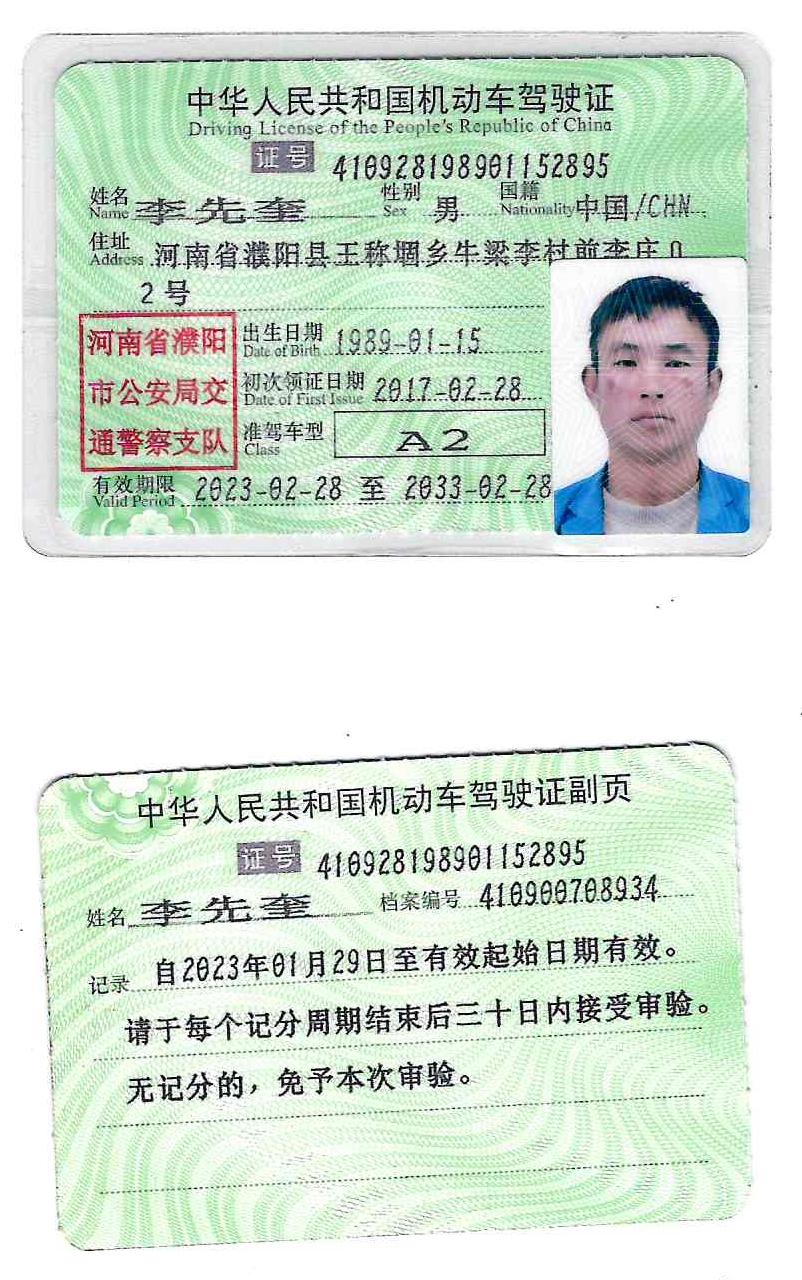 中华人民共和国机动车驾驶证
Driving License of the People's Republic of China
证号 410928198901152895
姓名 Name 李先奎 性别 Sex 男 国籍 Nationality 中国/CHN
住址 Address 河南省濮阳县王称堌乡牛梁李村前李庄0
2号
河南省濮阳
市公安局交
通警察支队
出生日期 Date of Birth 1989-01-15
初次领证日期 Date of First Issue 2017-02-28
准驾车型 Class A2
有效期限 Valid Period 2023-02-28 至 2033-02-28
中华人民共和国机动车驾驶证副页
证号 410928198901152895
姓名 李先奎 档案编号 410900708934
记录 自2023年01月29日至有效起始日期有效。
请于每个记分周期结束后三十日内接受审验。
无记分的，免予本次审验。